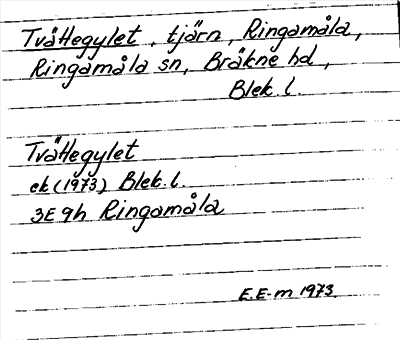 Tvättegylet, tjärn, Ringamåla,
Ringamåla sn, Bräkne hd,
Blek. l.
Tvättegylet
ek (1973) Blek. l.
3E 9h Ringamåla
E.E-m 1973